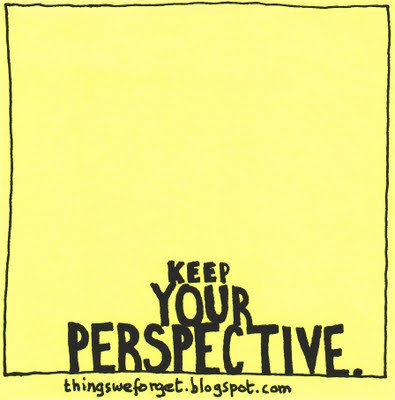 KEEP
YOUR
PERSPECTIVE.
thingsweforget.blogspot.com